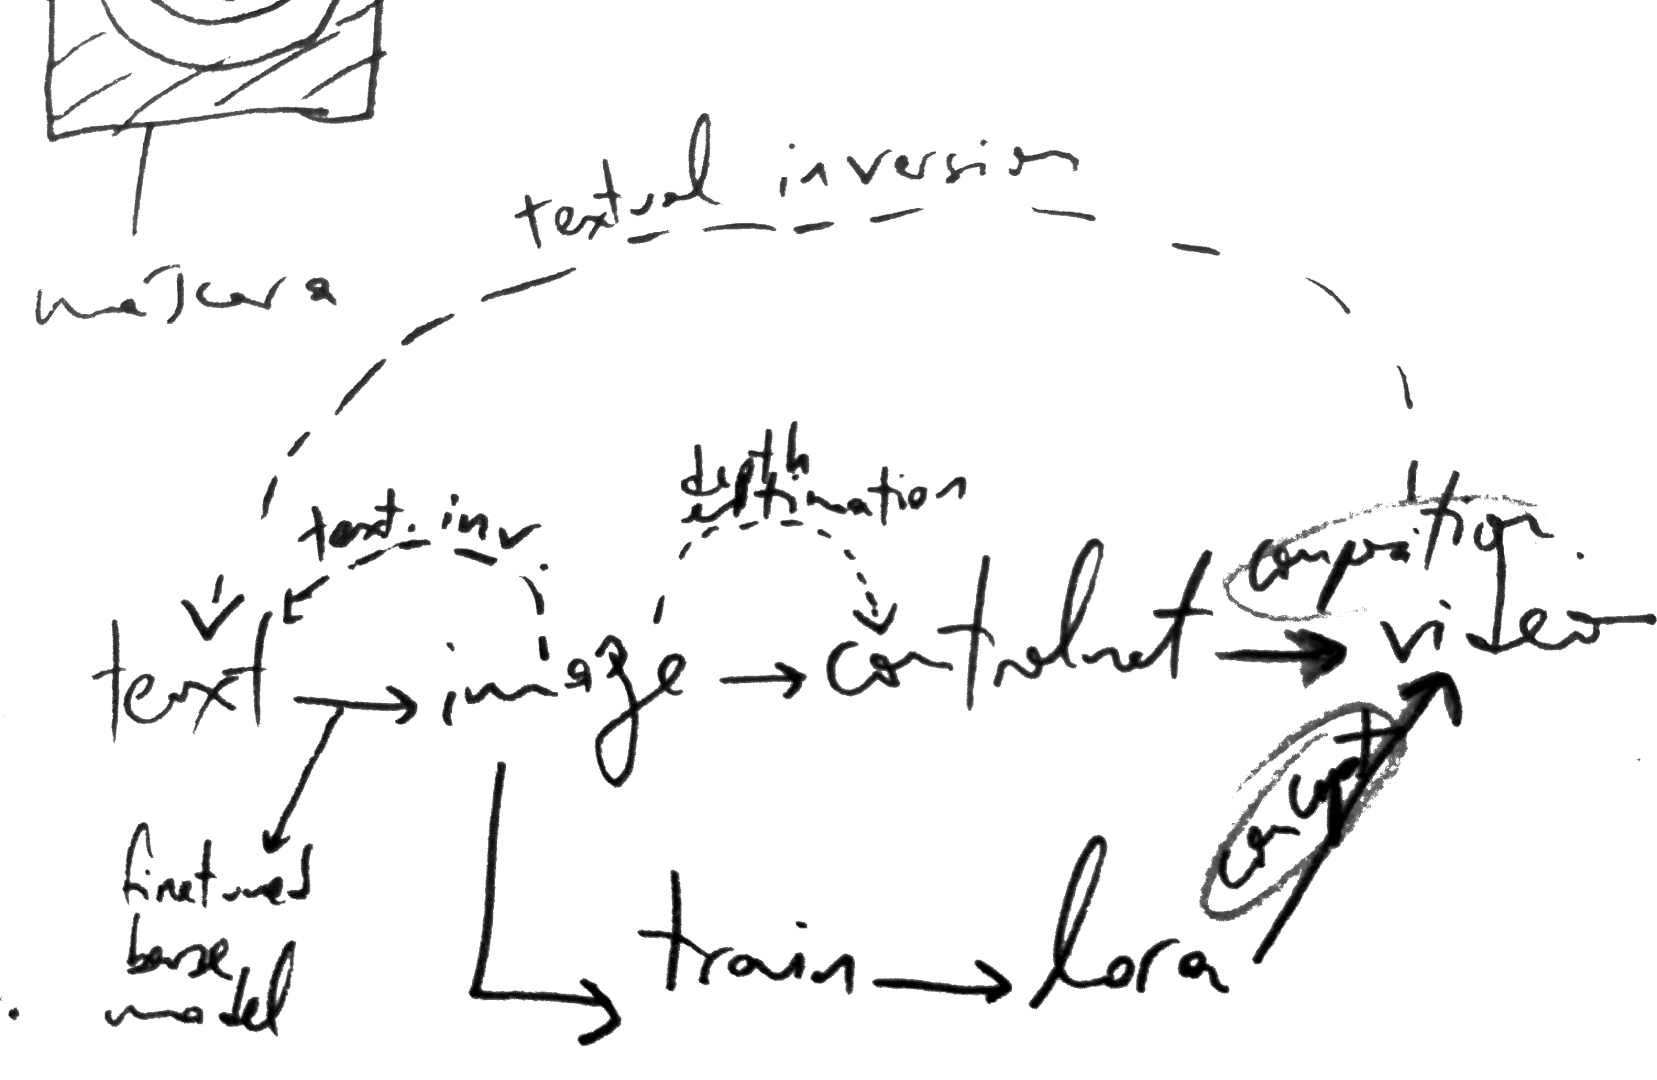 máscara
textual inversion
text. inv
depth
estimation
composition
text
image
controlnet
video
concept
finetuned
base
model
train
lora